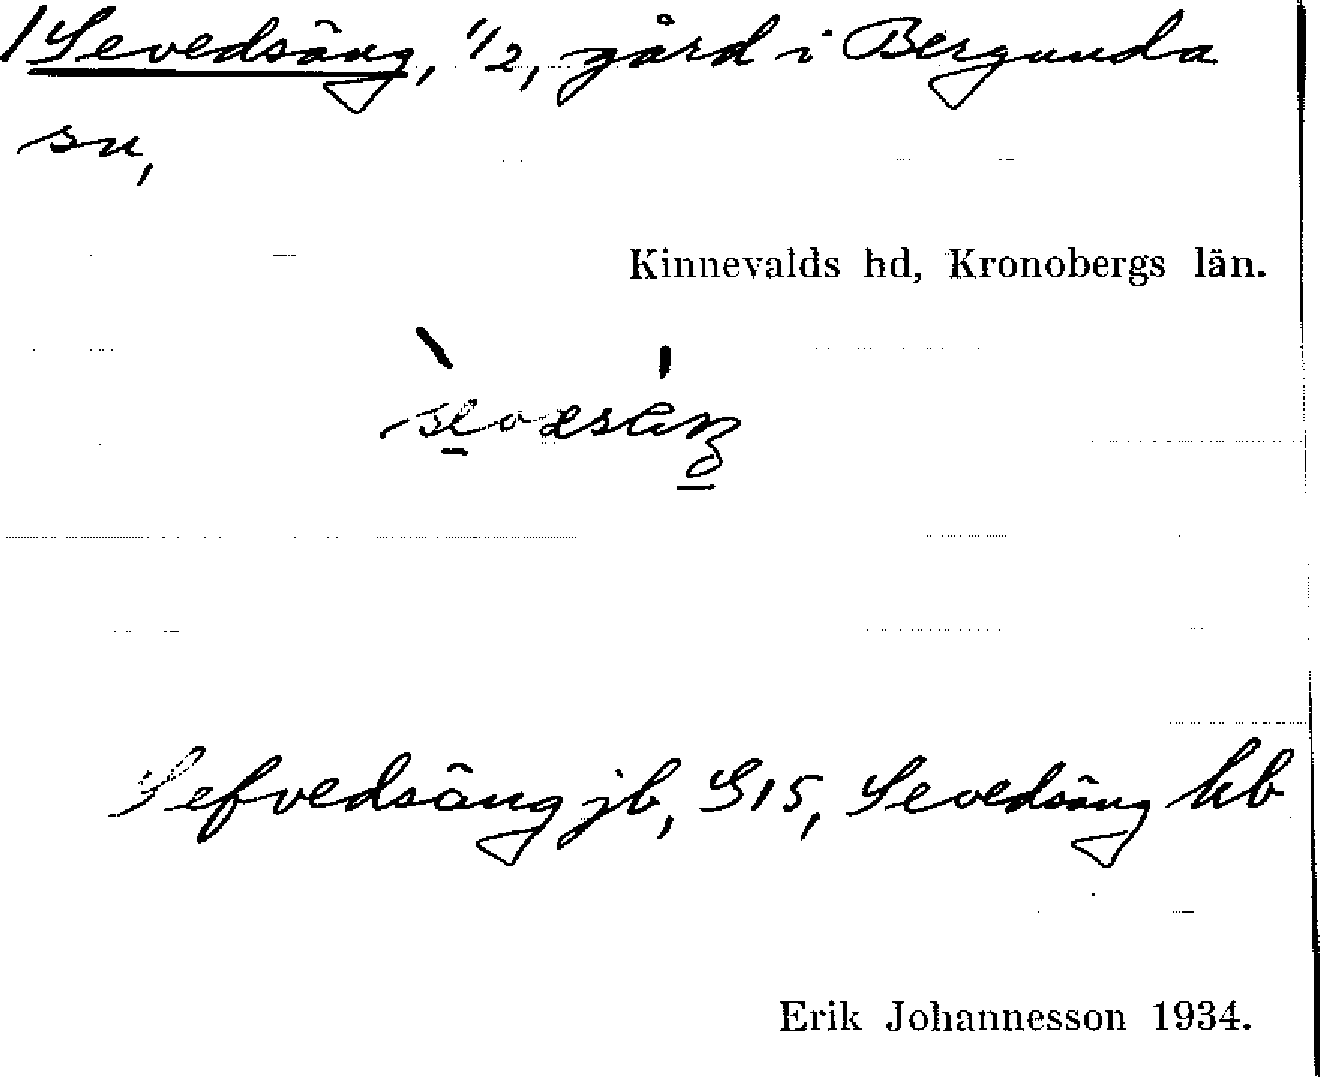 Sevedsäng, 1/2, gård i Bergunda
sn,
Kinnevalds hd, Kronobergs län.
Sefvedsäng jb, G15, Sevedsäng kb
Erik Johannesson 1934.